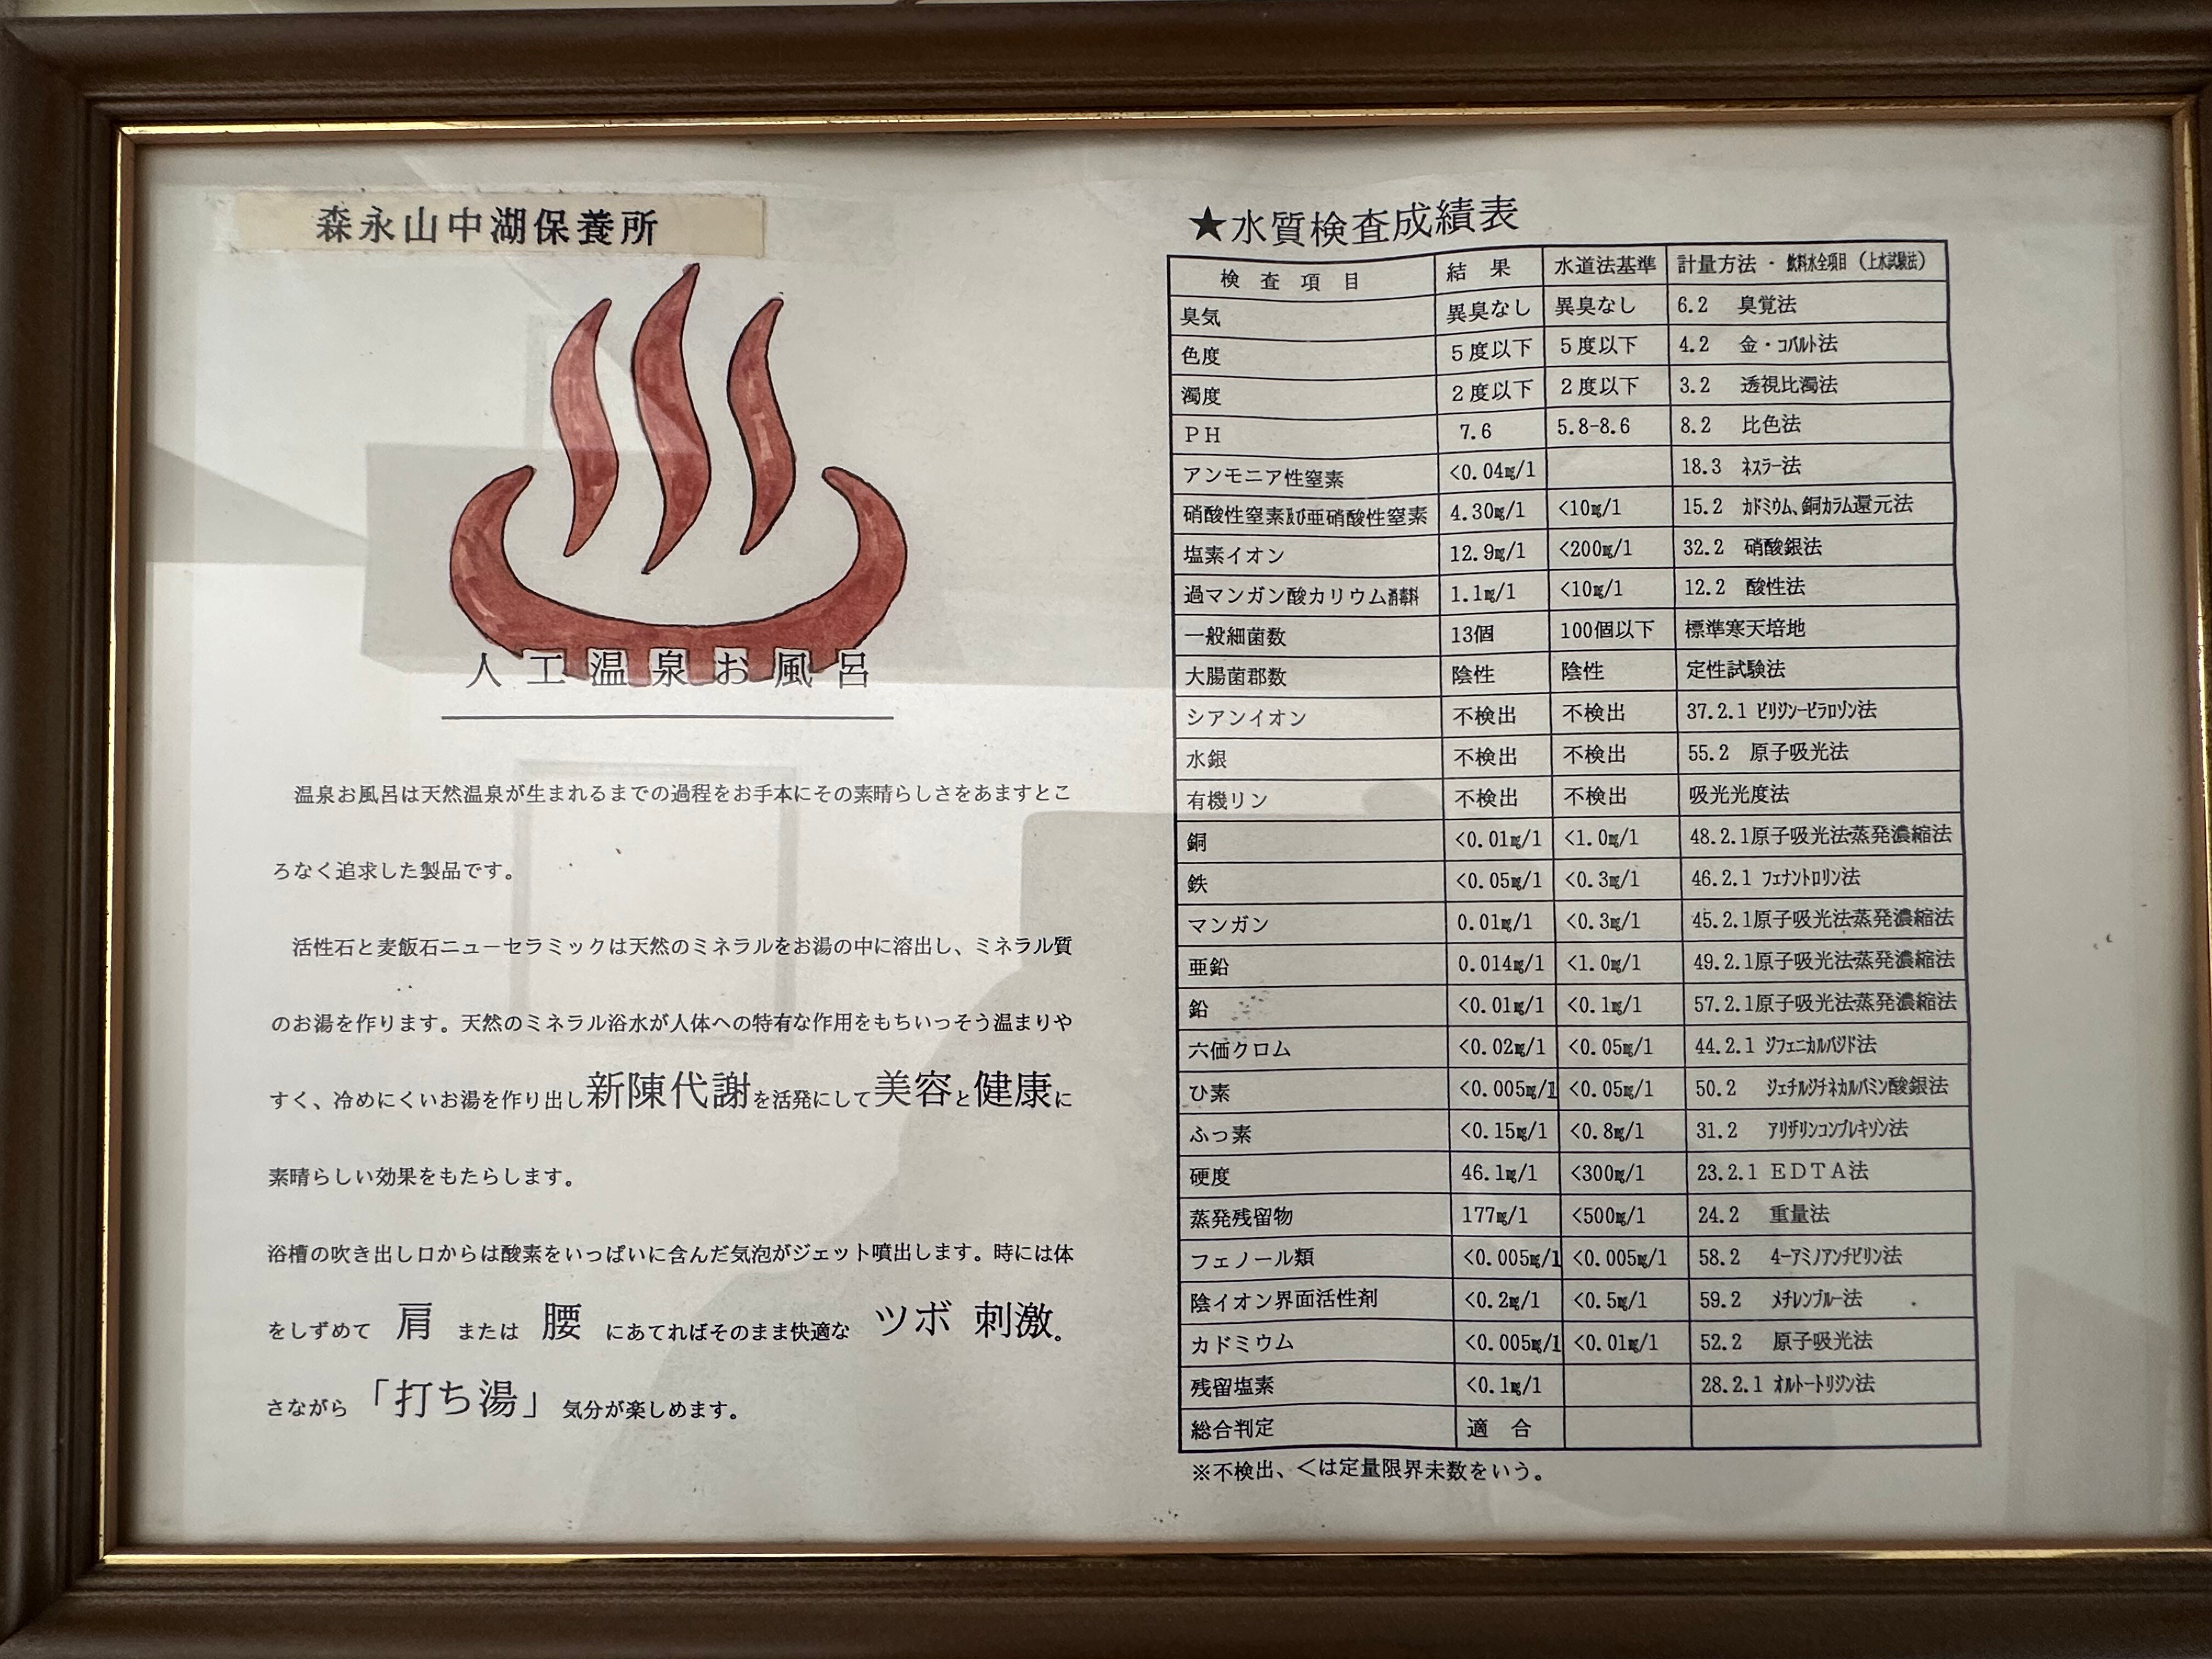 森永山中湖保養所
人工温泉お風呂
温泉お風呂は天然温泉が生まれるまでの過程をお手本にその素晴らしさをあますとこ
ろなく追求した製品です。
活性石と麦飯石ニューセラミックは天然のミネラルをお湯の中に溶出し、ミネラル質
のお湯を作ります。天然のミネラル浴水が人体への特有な作用をもちいっそう温まりや
すく、冷めにくいお湯を作り出し新陳代謝を活発にして美容と健康に
素晴らしい効果をもたらします。
浴槽の吹き出し口からは酸素をいっぱいに含んだ気泡がジェット噴出します。時には体
をしずめて 肩 または 腰 にあてればそのまま快適な ツボ 刺激。
さながら「打ち湯」気分が楽しめます。
★水質検査成績表
検査項目 結果 水道法基準 計量方法・飲料水全項目(上水試験法)
臭気 異臭なし 異臭なし 6.2 臭覚法
色度 5度以下 5度以下 4.2 金・コバルト法
濁度 2度以下 2度以下 3.2 透視比濁法
PH 7.6 5.8-8.6 8.2 比色法
アンモニア性窒素 <0.04㎎/l 18.3 ネスラー法
硝酸性窒素及び亜硝酸性窒素 4.30㎎/l <10㎎/l 15.2 カドミウム、銅カラム還元法
塩素イオン 12.9㎎/l <200㎎/l 32.2 硝酸銀法
過マンガン酸カリウム消費料 1.1㎎/l <10㎎/l 12.2 酸性法
一般細菌数 13個 100個以下 標準寒天培地
大腸菌郡数 陰性 陰性 定性試験法
シアンイオン 不検出 不検出 37.2.1 ピリジン-ピラロゾン法
水銀 不検出 不検出 55.2 原子吸光法
有機リン 不検出 不検出 吸光光度法
銅 <0.01㎎/l <1.0㎎/l 48.2.1原子吸光法蒸発濃縮法
鉄 <0.05㎎/l <0.3㎎/l 46.2.1 フェナントロリン法
マンガン 0.01㎎/l <0.3㎎/l 45.2.1原子吸光法蒸発濃縮法
亜鉛 0.014㎎/l <1.0㎎/l 49.2.1原子吸光法蒸発濃縮法
鉛 <0.01㎎/l <0.1㎎/l 57.2.1原子吸光法蒸発濃縮法
六価クロム <0.02㎎/l <0.05㎎/l 44.2.1 ジフェニカルバジド法
ひ素 <0.005㎎/l <0.05㎎/l 50.2 ジェチルジチネカルバミン酸銀法
ふっ素 <0.15㎎/l <0.8㎎/l 31.2 アリザリンコンプレキゾン法
硬度 46.1㎎/l <300㎎/l 23.2.1 EDTA法
蒸発残留物 177㎎/l <500㎎/l 24.2 重量法
フェノール類 <0.005㎎/l <0.005㎎/l 58.2 4-アミノアンチピリン法
陰イオン界面活性剤 <0.2㎎/l <0.5㎎/l 59.2 メチレンブルー法
カドミウム <0.005㎎/l <0.01㎎/l 52.2 原子吸光法
残留塩素 <0.1㎎/l 28.2.1 オルトートリジン法
総合判定 適合
※不検出、<は定量限界未数をいう。